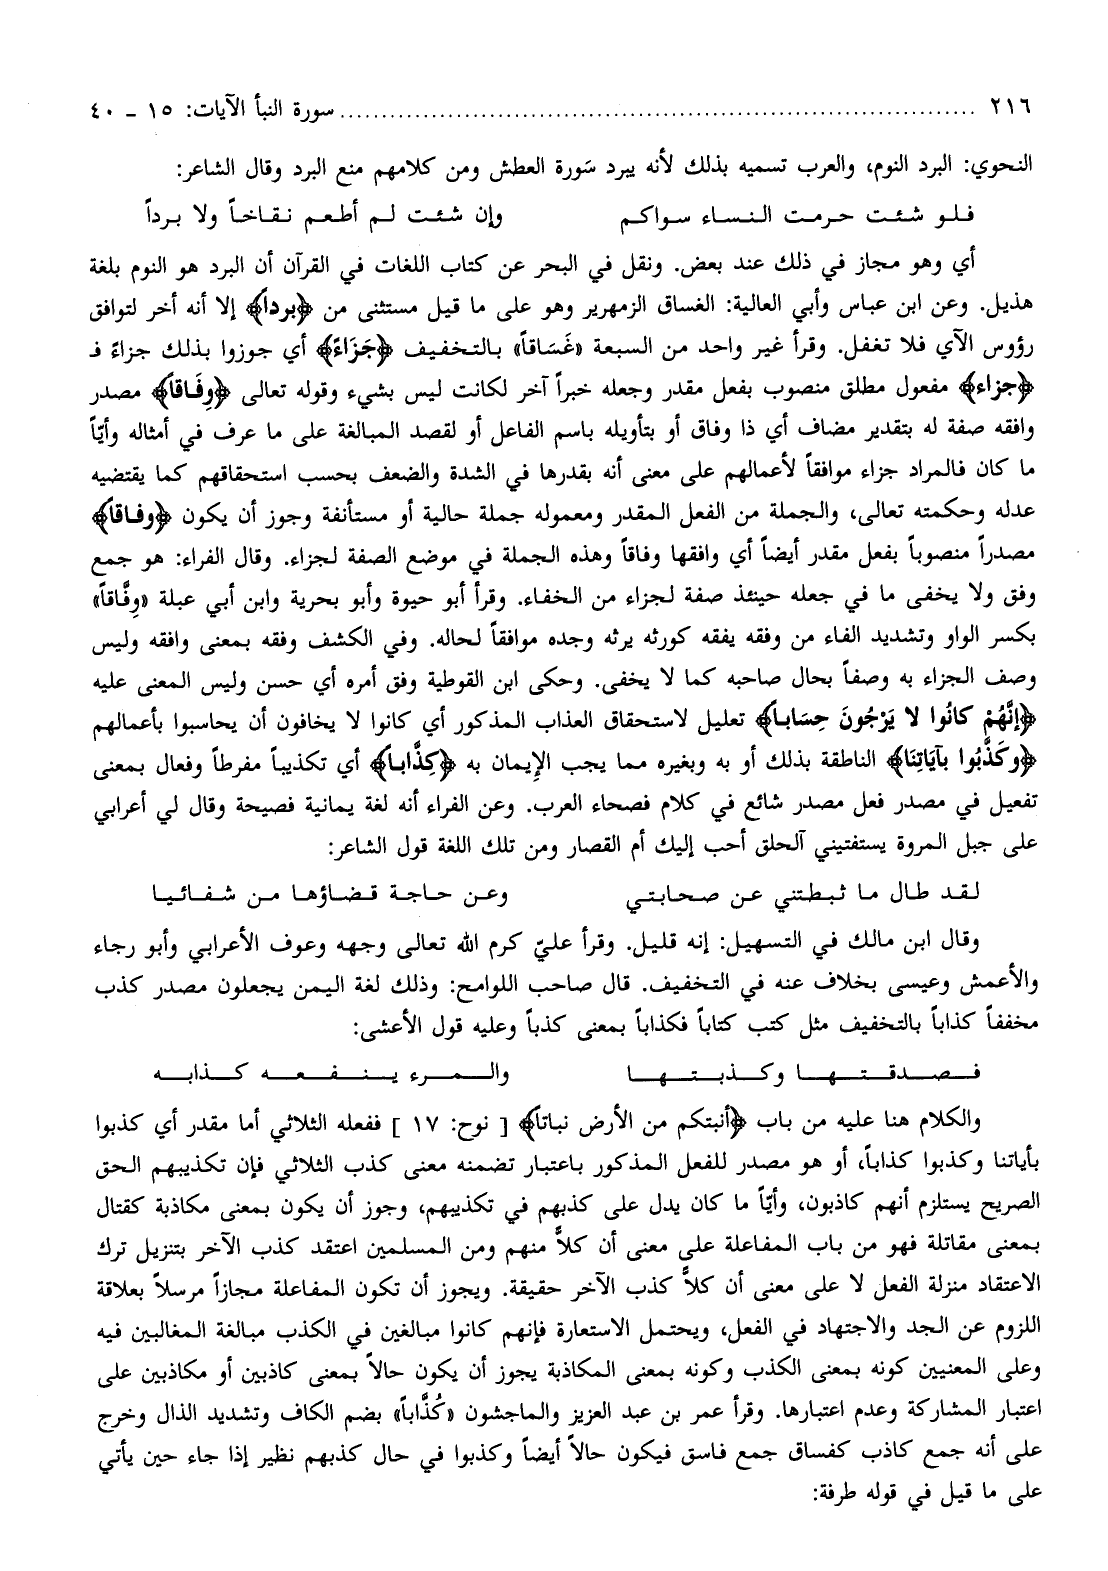 ٢١٦ ........................................................................... سورة النبأ الآيات: ١٥ ـ ٤٠
النحوي: البرد النوم، والعرب تسميه بذلك لأنه يبرد سَورة العطش ومن كلامهم منع البرد وقال الشاعر:
فلو شئت حرمت النساء سواكم وإن شئت لم أطعم نقاخاً ولا برداً
أي وهو مجاز في ذلك عند بعض. ونقل في البحر عن كتاب اللغات في القرآن أن البرد هو النوم بلغة
هذيل. وعن ابن عباس وأبي العالية: الغساق الزمهرير وهو على ما قيل مستثنى من ﴿برداً﴾ إلا أنه أخر لتوافق
رؤوس الآي فلا تغفل. وقرأ غير واحد من السبعة «غَسَاقاً» بالتخفيف ﴿جَزَاءً﴾ أي جوزوا بذلك جزاءً فـ
﴿جزاء﴾ مفعول مطلق منصوب بفعل مقدر وجعله خبراً آخر لكانت ليس بشيء وقوله تعالى ﴿وِفَاقاً﴾ مصدر
وافقه صفة له بتقدير مضاف أي ذا وفاق أو بتأويله باسم الفاعل أو لقصد المبالغة على ما عرف في أمثاله وأيّاً
ما كان فالمراد جزاء موافقاً لأعمالهم على معنى أنه بقدرها في الشدة والضعف بحسب استحقاقهم كما يقتضيه
عدله وحكمته تعالى، والجملة من الفعل المقدر ومعموله جملة حالية أو مستأنفة وجوز أن يكون ﴿وفاقاً﴾
مصدراً منصوباً بفعل مقدر أيضاً أي وافقها وفاقاً وهذه الجملة في موضع الصفة لجزاء. وقال الفراء: هو جمع
وفق ولا يخفى ما في جعله حينئذ صفة لجزاء من الخفاء. وقرأ أبو حيوة وأبو بحرية وابن أبي عبلة «وِفَّاقاً»
بكسر الواو وتشديد الفاء من وفقه يفقه كورثه يرثه وجده موافقاً لحاله. وفي الكشف وفقه بمعنى وافقه وليس
وصف الجزاء به وصفاً بحال صاحبه كما لا يخفى. وحكى ابن القوطية وفق أمره أي حسن وليس المعنى عليه
﴿إنَّهُمْ كانُوا لا يَرْجُونَ حِسَاباً﴾ تعليل لاستحقاق العذاب المذكور أي كانوا لا يخافون أن يحاسبوا بأعمالهم
﴿وكَذَّبُوا بآيَاتِنَا﴾ الناطقة بذلك أو به وبغيره مما يجب الإيمان به ﴿كِذَّاباً﴾ أي تكذيباً مفرطاً وفعال بمعنى
تفعيل في مصدر فعل مصدر شائع في كلام فصحاء العرب. وعن الفراء أنه لغة يمانية فصيحة وقال لي أعرابي
على جبل المروة يستفتيني آلحلق أحب إليك أم القصار ومن تلك اللغة قول الشاعر:
لقد طال ما ثبطتني عن صحابتي وعن حاجة قضاؤها من شفائيا
وقال ابن مالك في التسهيل: إنه قليل. وقرأ عليّ كرم الله تعالى وجهه وعوف الأعرابي وأبو رجاء
والأعمش وعيسى بخلاف عنه في التخفيف. قال صاحب اللوامح: وذلك لغة اليمن يجعلون مصدر كذب
مخففاً كذاباً بالتخفيف مثل كتب كتاباً فكذاباً بمعنى كذباً وعليه قول الأعشى:
فصدقتها وكذبتها والمرء ينفعه كذابه
والكلام هنا عليه من باب ﴿أنبتكم من الأرض نباتاً﴾ [ نوح: ١٧ ] ففعله الثلاثي أما مقدر أي كذبوا
بأياتنا وكذبوا كذاباً، أو هو مصدر للفعل المذكور باعتبار تضمنه معنى كذب الثلاثي فإن تكذيبهم الحق
الصريح يستلزم أنهم كاذبون، وأيّاً ما كان يدل على كذبهم في تكذيبهم، وجوز أن يكون بمعنى مكاذبة كقتال
بمعنى مقاتلة فهو من باب المفاعلة على معنى أن كلاًّ منهم ومن المسلمين اعتقد كذب الآخر بتنزيل ترك
الاعتقاد منزلة الفعل لا على معنى أن كلاًّ كذب الآخر حقيقة. ويجوز أن تكون المفاعلة مجازاً مرسلاً بعلاقة
اللزوم عن الجد والاجتهاد في الفعل، ويحتمل الاستعارة فإنهم كانوا مبالغين في الكذب مبالغة المغالبين فيه
وعلى المعنيين كونه بمعنى الكذب وكونه بمعنى المكاذبة يجوز أن يكون حالاً بمعنى كاذبين أو مكاذبين على
اعتبار المشاركة وعدم اعتبارها. وقرأ عمر بن عبد العزيز والماجشون «كُذَّاباً» بضم الكاف وتشديد الذال وخرج
على أنه جمع كاذب كفساق جمع فاسق فيكون حالاً أيضاً وكذبوا في حال كذبهم نظير إذا جاء حين يأتي
على ما قيل في قوله طرفة: